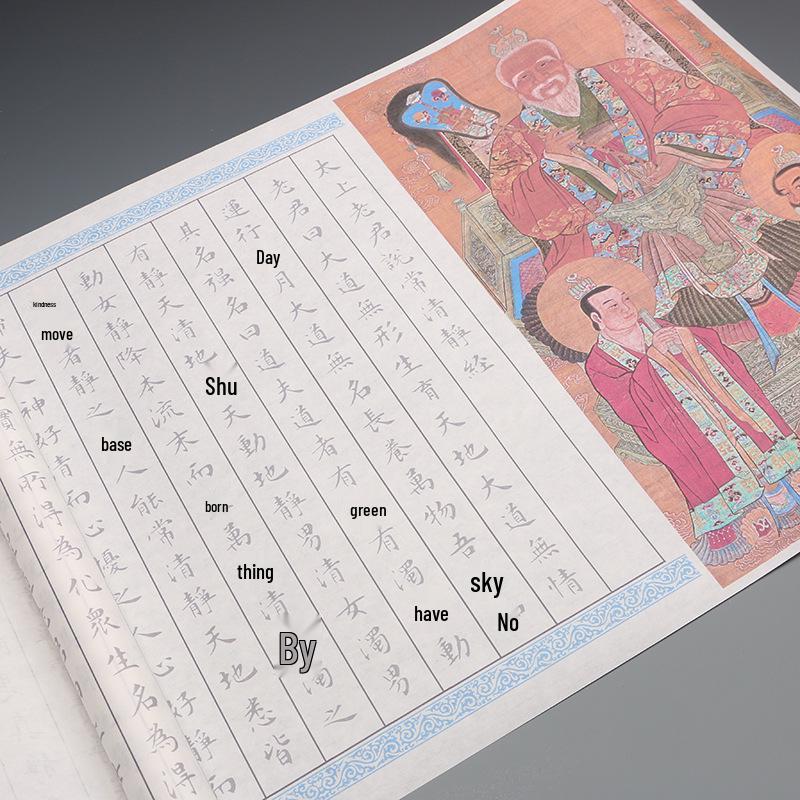 太上老君說常清靜經
老君曰大道無形生育天地大道無情
運行 Day 月大道無名長養萬物吾 sky No
其名强名曰道夫道者有 green 有濁 have 動
有靜天清地 Shu 天動地靜男清女濁男
動女靜降本流末而 born 萬 thing 清 By 濁之
kindness move 者靜之 base 人能常清靜天地悉皆
夫人神好清而心擾之人心好靜而
實無所得為化眾生名為得